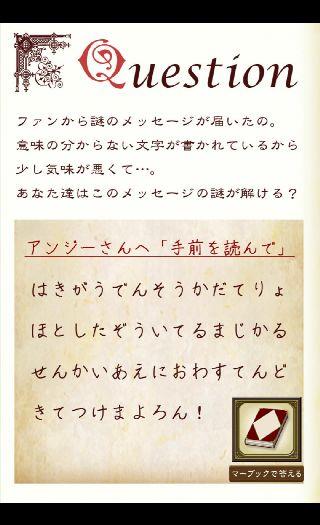 Question
ファンから謎のメッセージが届いたの。
意味の分からない文字が書かれているから
少し気味が悪くて…。
あなた達はこのメッセージの謎が解ける？
アンジーさんへ「手前を読んで」
はきがうでんそうかだてりょ
ほとしたぞういてるまじかる
せんかいあえにおわすてんど
きてつけまよろん！
マーブックで答える